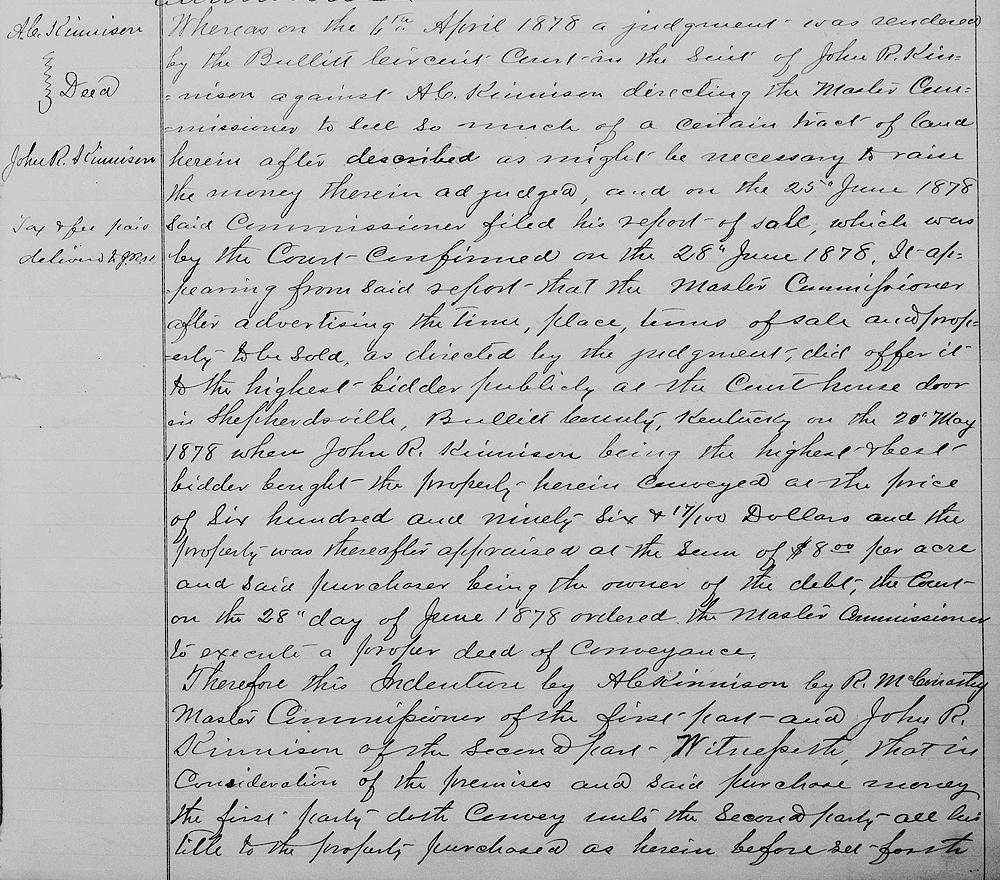 A.C. Kinnison
Deed
John R. Kinnison
Tax & fee paid
delivered to J.R.K.
Whereas on the 6th April 1878 a judgment was rendered
by the Bullitt Circuit Court in the Suit of John R. Kin=
=nison against A.C. Kinnison directing the Master Com=
=missioner to sell so much of a certain tract of land
herein after described as might be necessary to raise
the money therein adjudged, and on the 25" June 1878
said Commissioner filed his report of sale, which was
by the Court confirmed on the 28" June 1878. It ap=
=pearing from said report that the Master Commissioner
after advertising the time, place, terms of sale and prop=
=erty to be sold, as directed by the judgment, did offer it
to the highest bidder publicly at the Court house door
in Shepherdsville, Bullitt County, Kentucky on the 20" May
1878 when John R. Kinnison being the highest & best
bidder bought the property herein conveyed at the price
of Six hundred and ninety six & 17/100 Dollars and the
property was thereafter appraised at the sum of $8 00 per acre
and said purchaser being the owner of the debt, the Court
on the 28" day of June 1878 ordered the Master Commissioner
to execute a proper deed of conveyance.
Therefore this Indenture by A C Kinnison by R.
Master Commissioner of the first part and John R.
Kinnison of the second part Witnesseth, that in
Consideration of the premises and said purchase money
the first party doth convey unto the second party all his
title to the property purchased as herein before set forth